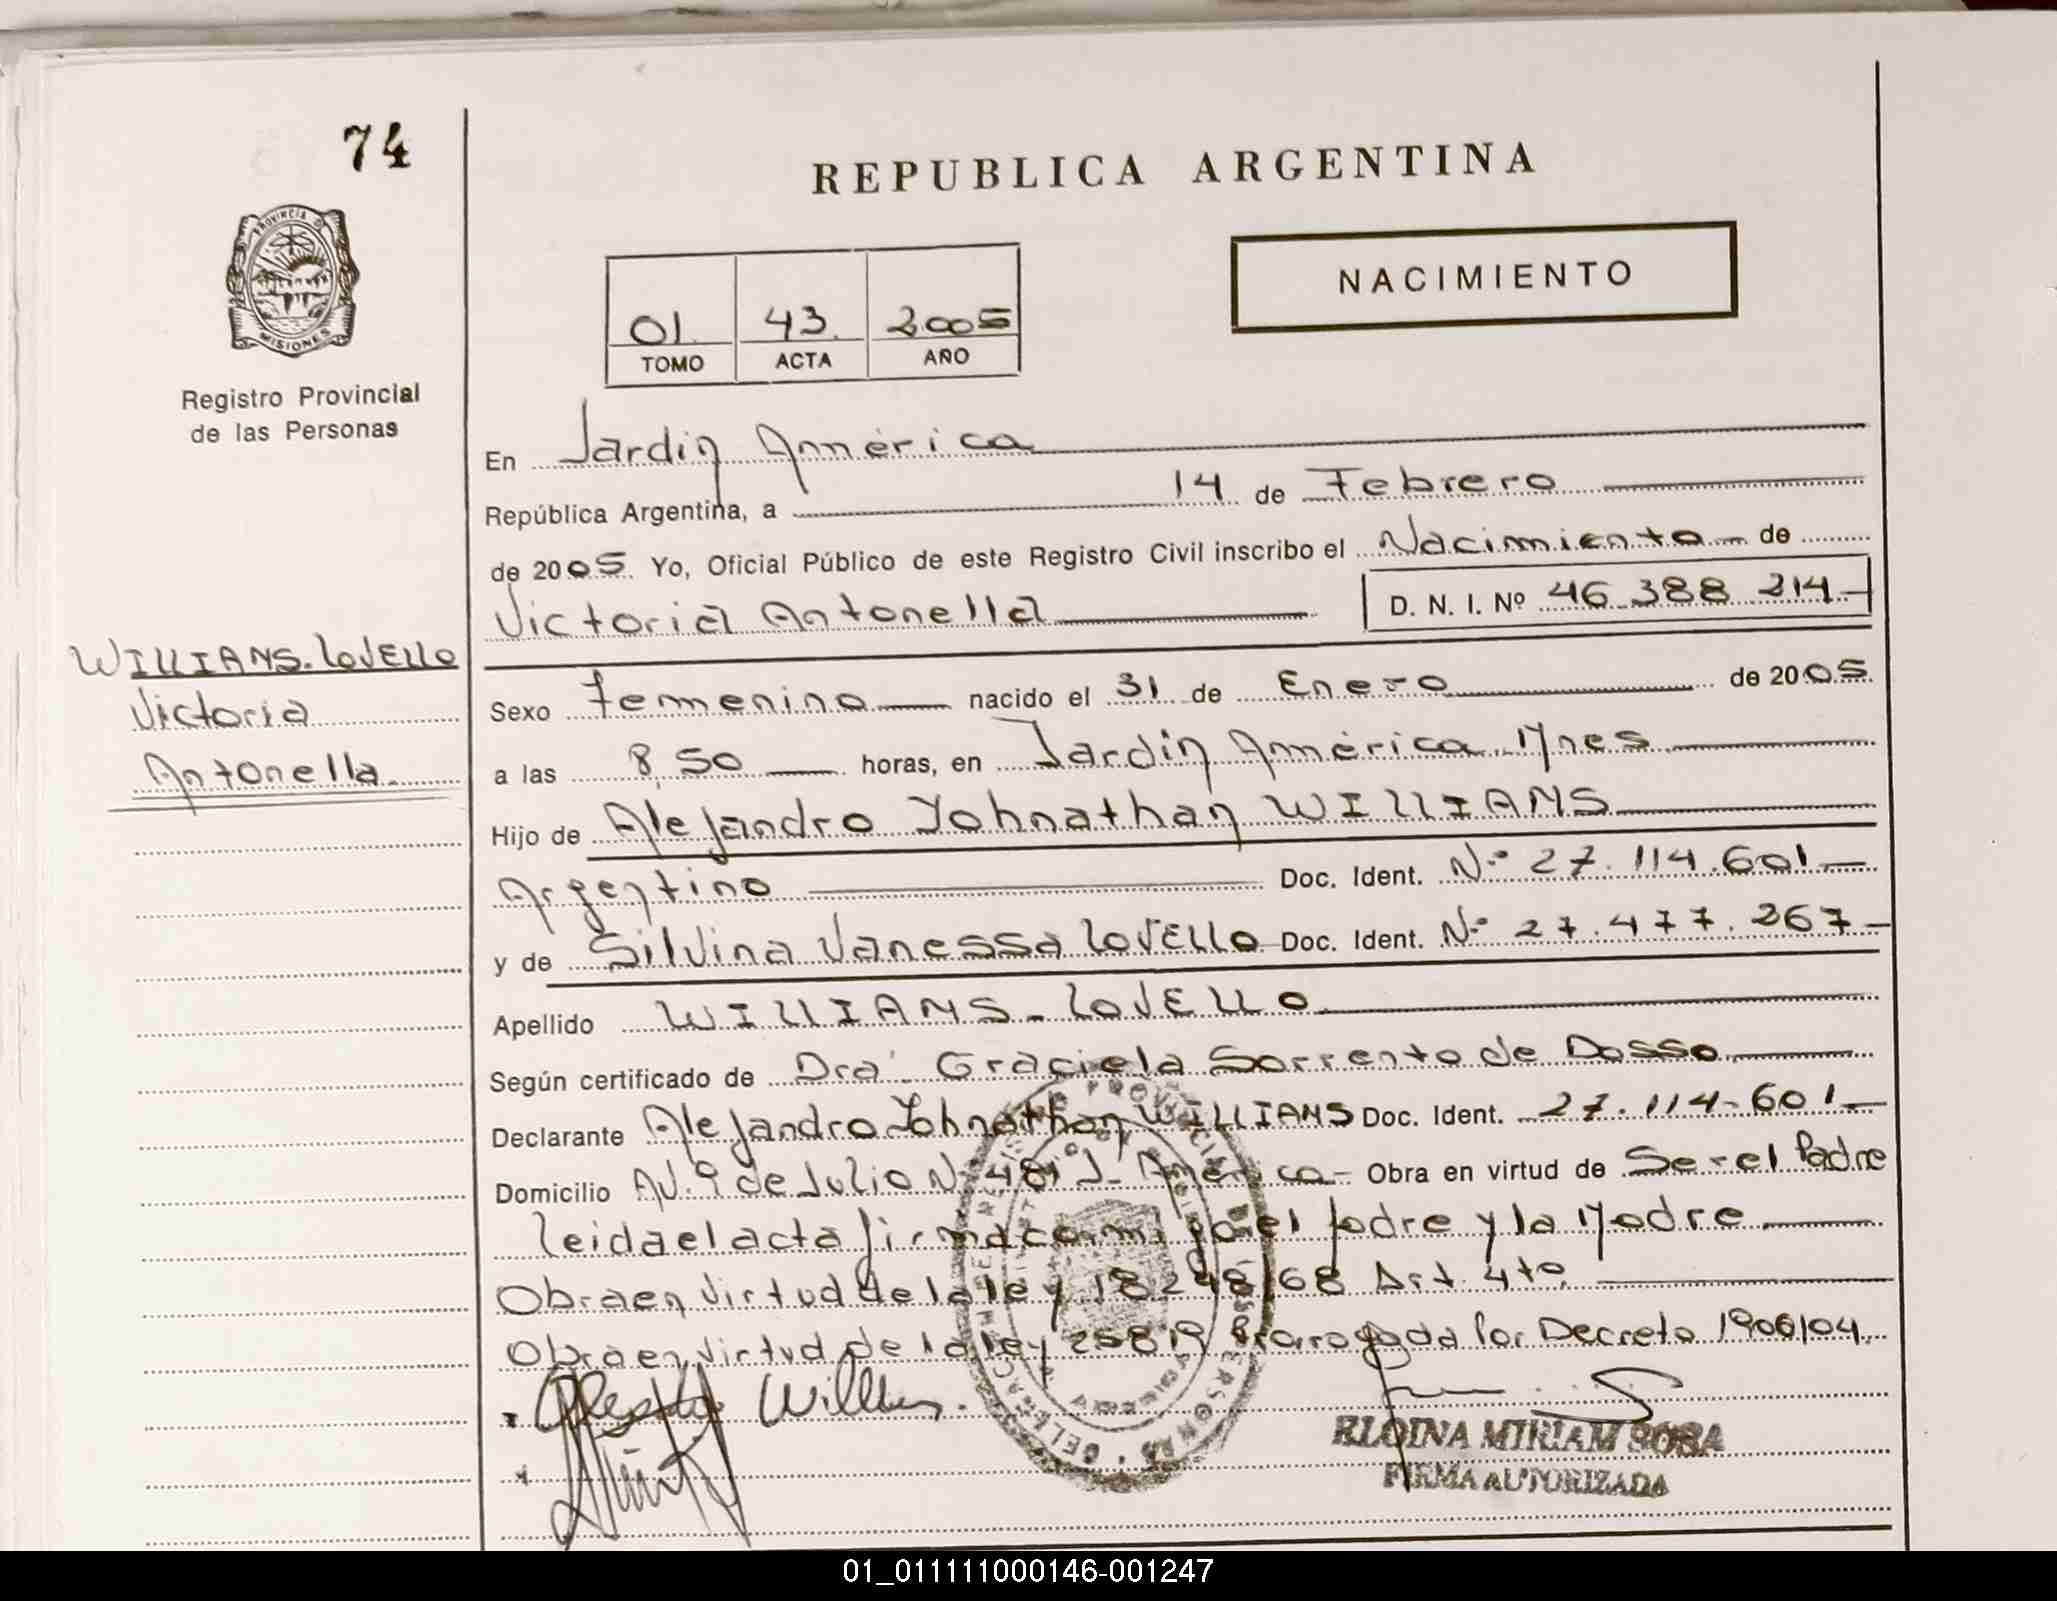 74
REPUBLICA ARGENTINA
NACIMIENTO
PROVINCIA DE
MISIONES
Registro Provincial
de las Personas
01 43 2005
TOMO ACTA AÑO
En Jardín América
República Argentina, a 14 de Febrero
de 2005 Yo, Oficial Público de este Registro Civil inscribo el Nacimiento de
Victoria Antonella D. N. I. Nº 46.388.214
WILLIANS-LOVELLO
Victoria
Antonella
Sexo Femenino nacido el 31 de Enero de 2005
a las 8,50 horas, en Jardín América Mnes
Hijo de Alejandro Yohnathan WILLIANS
Argentino Doc. Ident. Nº 27.114.601
y de Silvina Vanessa LOVELLO Doc. Ident. Nº 27.477.267
Apellido WILLIANS-LOVELLO
Según certificado de Dra. Graciela Sorrento de Dosso
Declarante Alejandro Yohnathan WILLIANS Doc. Ident. 27.114-601
Domicilio Av. 9 de Julio Nº 481 J. América Obra en virtud de Ser el Padre
leida el acta firma conmigo el Padre y la Madre
Obra en virtud de la ley 18248/68 Art. 4to
Obra en virtud de la ley 25819 Prorogada Por Decreto 1900/04
ELOINA MIRIAM SOSA
FIRMA AUTORIZADA
01_011111000146-001247